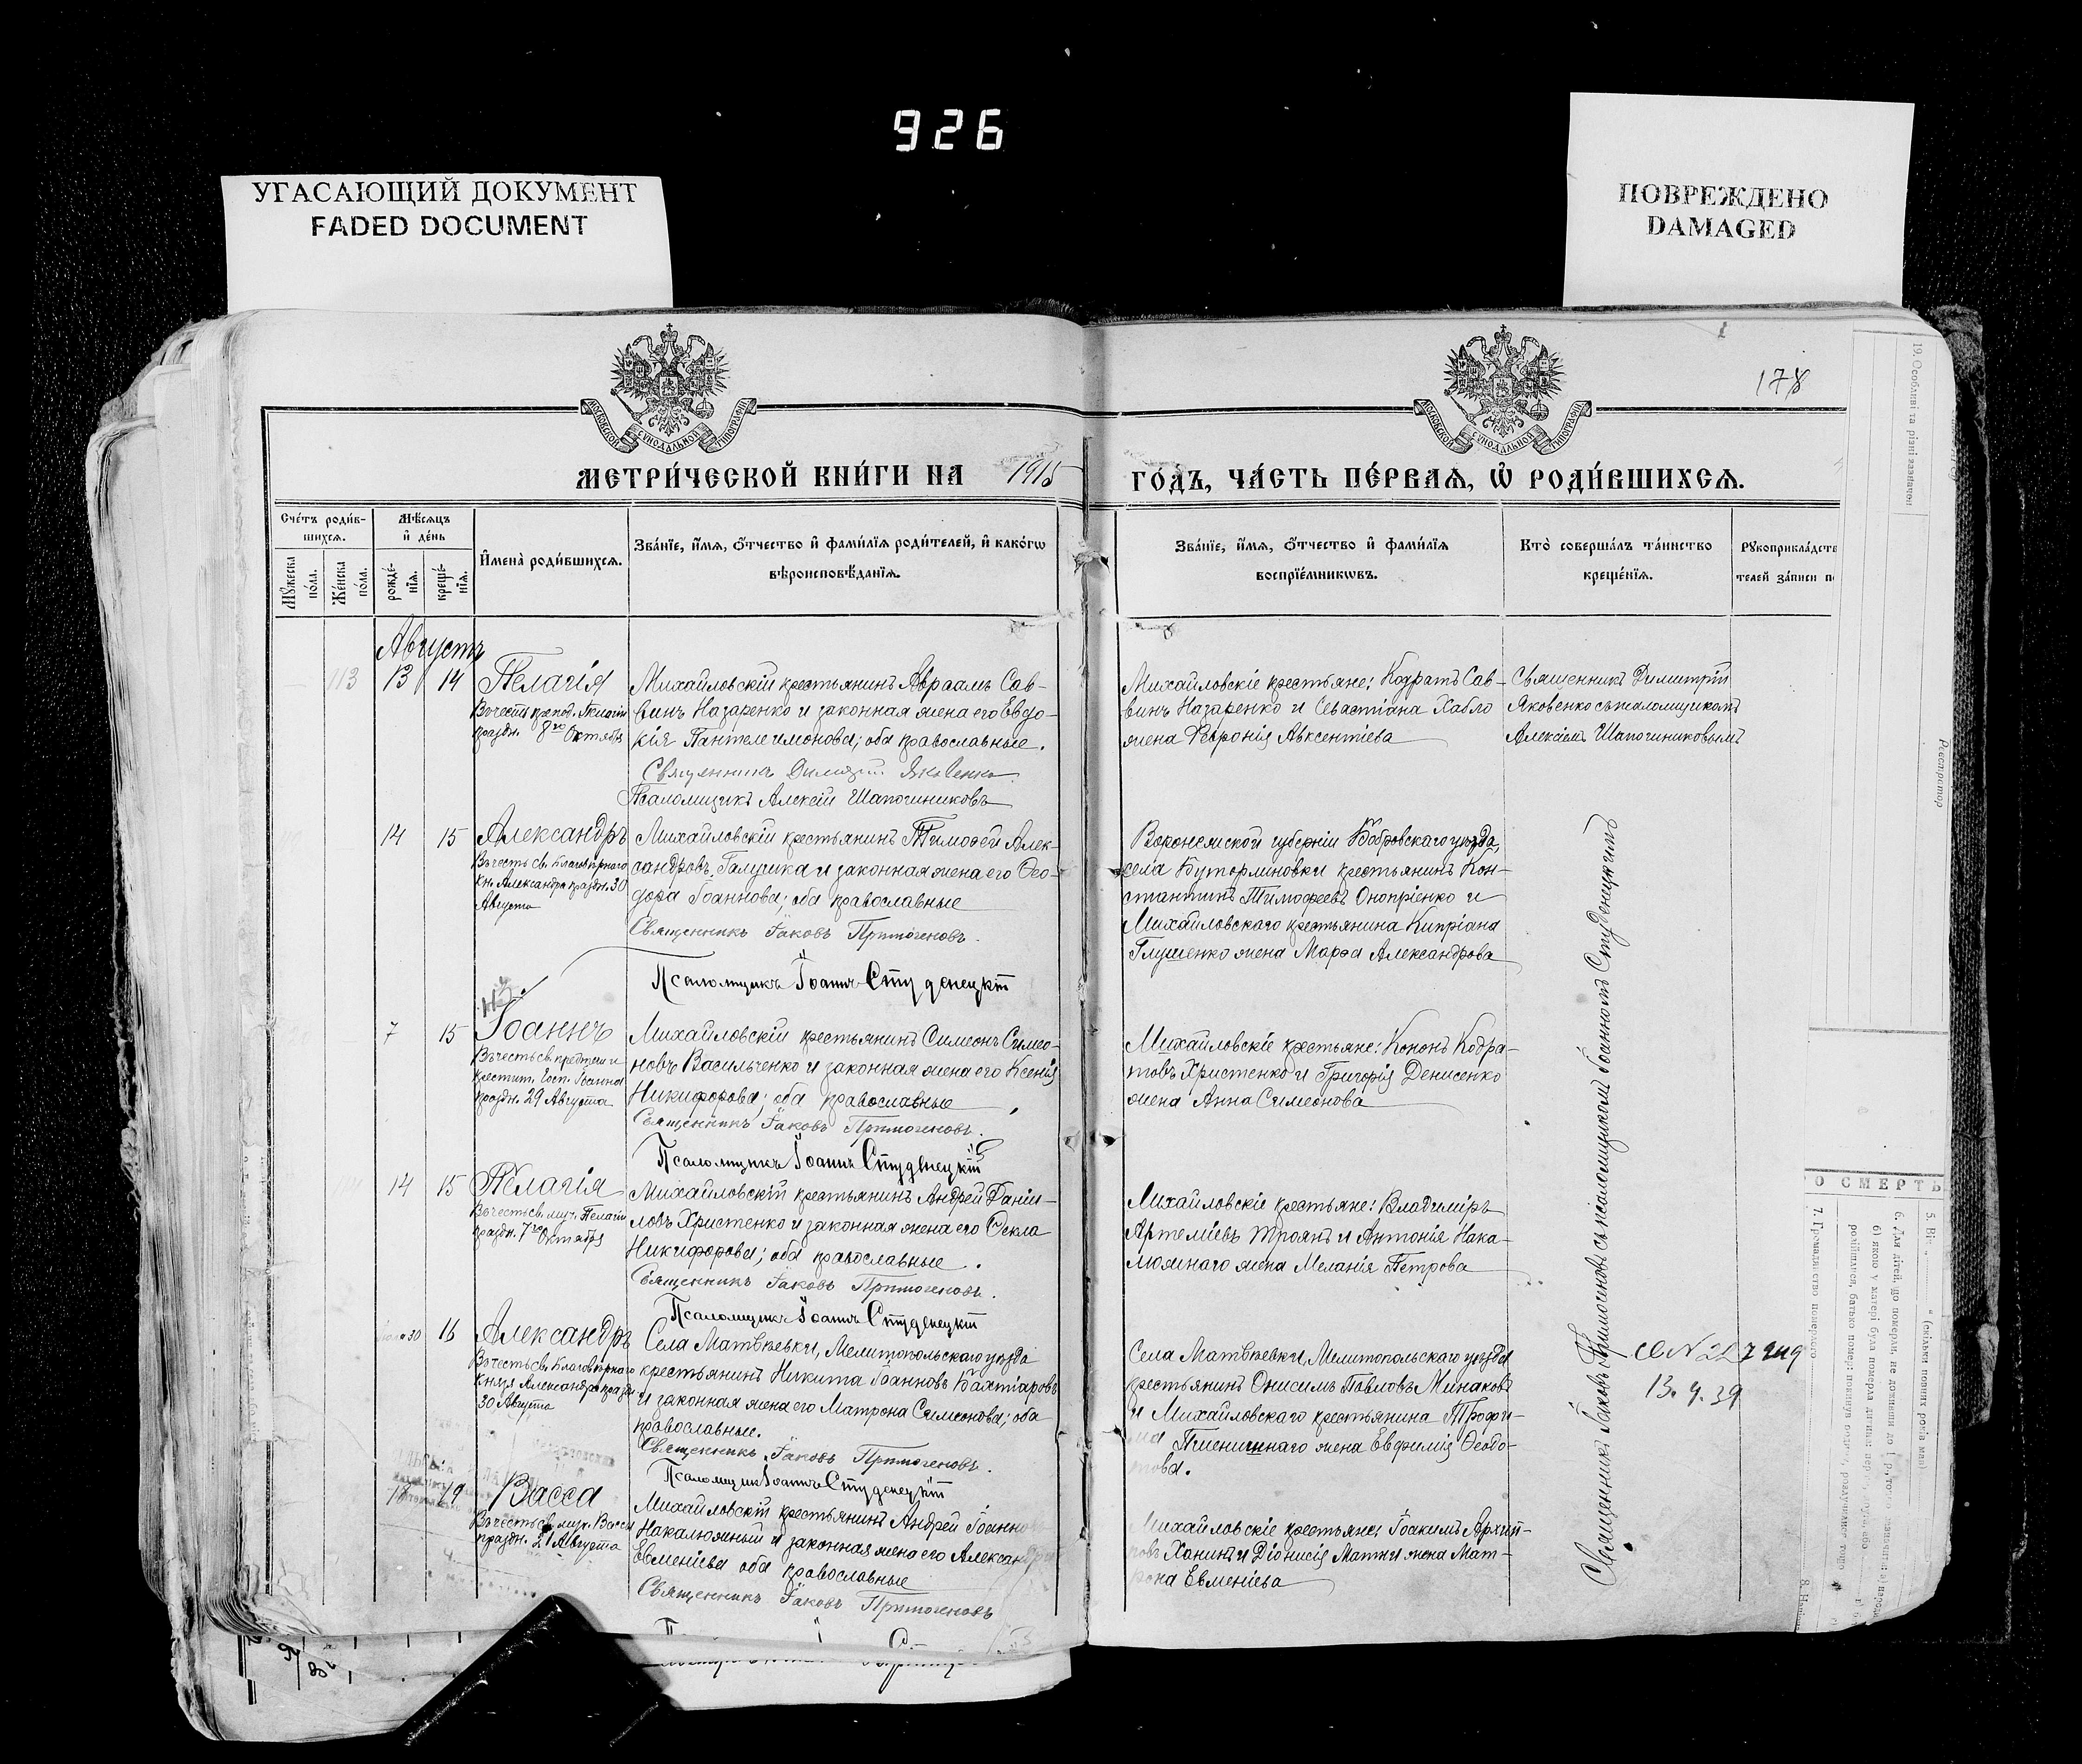 926
УГАСАЮЩИЙ ДОКУМЕНТ
FADED DOCUMENT
ПОВРЕЖДЕНО
DAMAGED
178
МОСКОВСКОЙ СѴНОДАЛЬНОЙ ТИПОГРАФІИ
МОСКОВСКОЙ СѴНОДАЛЬНОЙ ТИПОГРАФІИ
МЕТРИ́ЧЕСКОЙ КНИ́ГИ НА 1915
ГО́ДЪ, ЧА́СТЬ ПЕ́РВАѦ, Ѡ҆ РОДИ́ВШИХСѦ.
Сче́тъ роди́в-
шихсѧ.
Мѹжеска по́ла.
Же́нска по́ла.
Мѣ́сѧцъ
и҆ де́нь
рожде́-
нїѧ.
креще́-
нїѧ.
И҆мена̀ роди́вшихсѧ.
Зва́нїе, и҆́мѧ, ѻ҆́тчество и҆ фами́лїѧ роди́телей, и҆ како́гѡ
вѣроисповѣ́данїѧ.
Зва́нїе, и҆́мѧ, ѻ҆́тчество и҆ фами́лїѧ
воспрїе́мникѡвъ.
Кто̀ соверша́лъ та́инство
креще́нїѧ.
Рѹкоприкла́дств
телей за́писи п
Августъ
113 13 14 Пелагія
Въ честь препод. Пелагіи
праздн. 8го Октября
Михайловскій крестьянинъ Авраамъ Сав-
винъ Назаренко и законная жена его Евдо-
кія Пантелеимонова; оба православные.
Священникъ Димитрій Яковенко
Псаломщикъ Алексій Шапошниковъ
Михайловскіе крестьяне: Кодратъ Сав-
винъ Назаренко и Севастіана Хабло
жена Февронія Авксентіева
Священникъ Димитрій
Яковенко съ псаломщикомъ
Алексіемъ Шапошниковымъ
14 15 Александръ
Въ честь св. Благовѣрнаго
кн. Александра праздн. 30
Августа
Михайловскій крестьянинъ Тимоѳей Алек-
сандровъ Галушка и законная жена его Ѳео-
дора Іоаннова; оба православные
Священникъ Іаковъ Примогеновъ.
Псаломщикъ Іоаннъ Студенецкій
Воронежской губерніи Бобровскаго уѣзда,
села Бутурлиновки крестьянинъ Кон-
стантинъ Тимофеевъ Оноприенко и
Михайловскаго крестьянина Кипріана
Глущенко жена Марѳа Александрова
7 15 Іоаннъ
Въ честь св. предтечи и
крестит. Госп. Іоанна
праздн. 29 Августа
Михайловскій крестьянинъ Симеонъ Симео-
новъ Васильченко и законная жена его Ксенія
Никифорова; оба православные
Священникъ Іаковъ Примогеновъ.
Псаломщикъ Іоаннъ Студенецкій
Михайловскіе крестьяне: Кононъ Кодра-
товъ Христенко и Григорія Денисенко
жена Анна Симеонова
14 15 Пелагія
Въ честь св. муч. Пелагіи
праздн. 7го Октября
Михайловскій крестьянинъ Андрей Даніи-
ловъ Христенко и законная жена его Ѳекла
Никифорова; оба православные.
Священникъ Іаковъ Примогеновъ.
Псаломщикъ Іоаннъ Студенецкій
Михайловскіе крестьяне: Владиміръ
Артеміевъ Троянъ и Антонія Нака-
люжнаго жена Меланія Петрова
30 16 Александръ
Въ честь св. Благовѣрнаго
князя Александра праздн
30 Августа
Села Матвѣевки, Мелитопольскаго уѣзда
крестьянинъ Никита Іоанновъ Бахтіаровъ
и законная жена его Матрона Симеонова; оба
православные.
Священникъ Іаковъ Примогеновъ.
Псаломщикъ Іоаннъ Студенецкій
Села Матвѣевки, Мелитопольскаго уѣзда
крестьянинъ Онисимъ Павловъ Минаковъ
и Михайловскаго крестьянина Трофи-
ма Пшеничнаго жена Евфимія Ѳеодо-
това.
13.9.39
18 19 Васса
Въ честь св. муч. Вассы
праздн. 21 Августа
Михайловскій крестьянинъ Андрей Іоанно
Накалюжный и законная жена его Александра
Евменіева оба православные
Священникъ Іаковъ Примогеновъ
Михайловскіе крестьяне: Іоакимъ Архип-
повъ Ханинъ и Діонисія Матни жена Мат-
рона Евменіева
Священникъ Іаковъ Примогеновъ съ псаломщикомъ Іоанномъ Студенецкимъ
19. Особливі та різні зазначен
Реєстратор
РО СМЕРТЬ
(скільки повних років мав)
7. Громадянство померлого